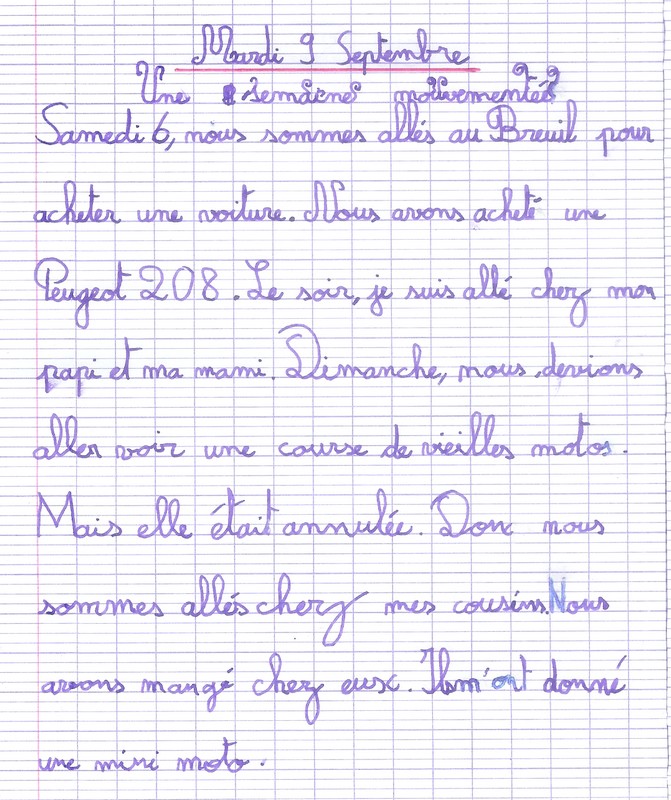 Mardi 9 Septembre
Une semaine mouvementée
Samedi 6, nous sommes allés au Breuil pour
acheter une voiture. Nous avons acheté une
Peugeot 208. Le soir, je suis allé chez mon
papi et ma mami. Dimanche, nous devions
aller voir une course de vieilles motos.
Mais elle était annulée. Donc nous
sommes allés chez mes cousins. Nous
avons mangé chez eux. Ils m'ont donné
une mini moto.